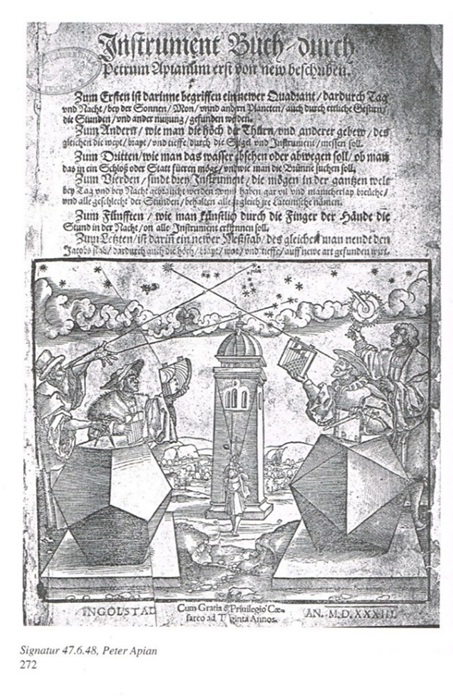 Instrument Buch/durch
Petrum Apianum erst von new beschriben.
Zum Ersten ist darinne begriffen ein newer Quadrant/dardurch Tag
vnd Nacht/bey der Sonnen/Mon/vnnd andern Planeten/auch durch ettliche Gestirn/
die Stunden/vnd ander nutzung/gefunden werden.
Zum Andern/wie man die höch der Thürn/vnd anderer gebew/des
gleichen die weyt/brayt/vnd tieffe/durch die Spigel vnd Instrument/messen soll.
Zum Dritten/wie man das wasser absehen oder abwegen soll/ob man
das in ein Schloß oder Statt füeren möge/vnd wie man die Brünne suchen soll.
Zum Vierden/sindt Instrument/die mögen in der gantzen welt
bey Tag vnd bey Nacht gebraucht werden/vnnd haben gar vil vnd manicherlay breüche/
vnd alle geschlecht der Stunden/behalten alle zugleich Lateinische nämen.
Zum Fünfften/wie man künstlich durch die Finger der Hände die
Stund in der Nacht/on alle Instrument erkennen soll.
Zum Letzten/ist darin ein newer Meßstab/des gleichen man nendt den
Jacobs stab/dardurch auch die höch/brayt/weyt/vnd tieffe/auff newe art gefunden wirt.
INGOLSTAD
Cum Gratia & Priuilegio Cæ-
sareo ad Triginta Annos.
AN. M.D.XXXIII.
Signatur 47.6.48, Peter Apian
272